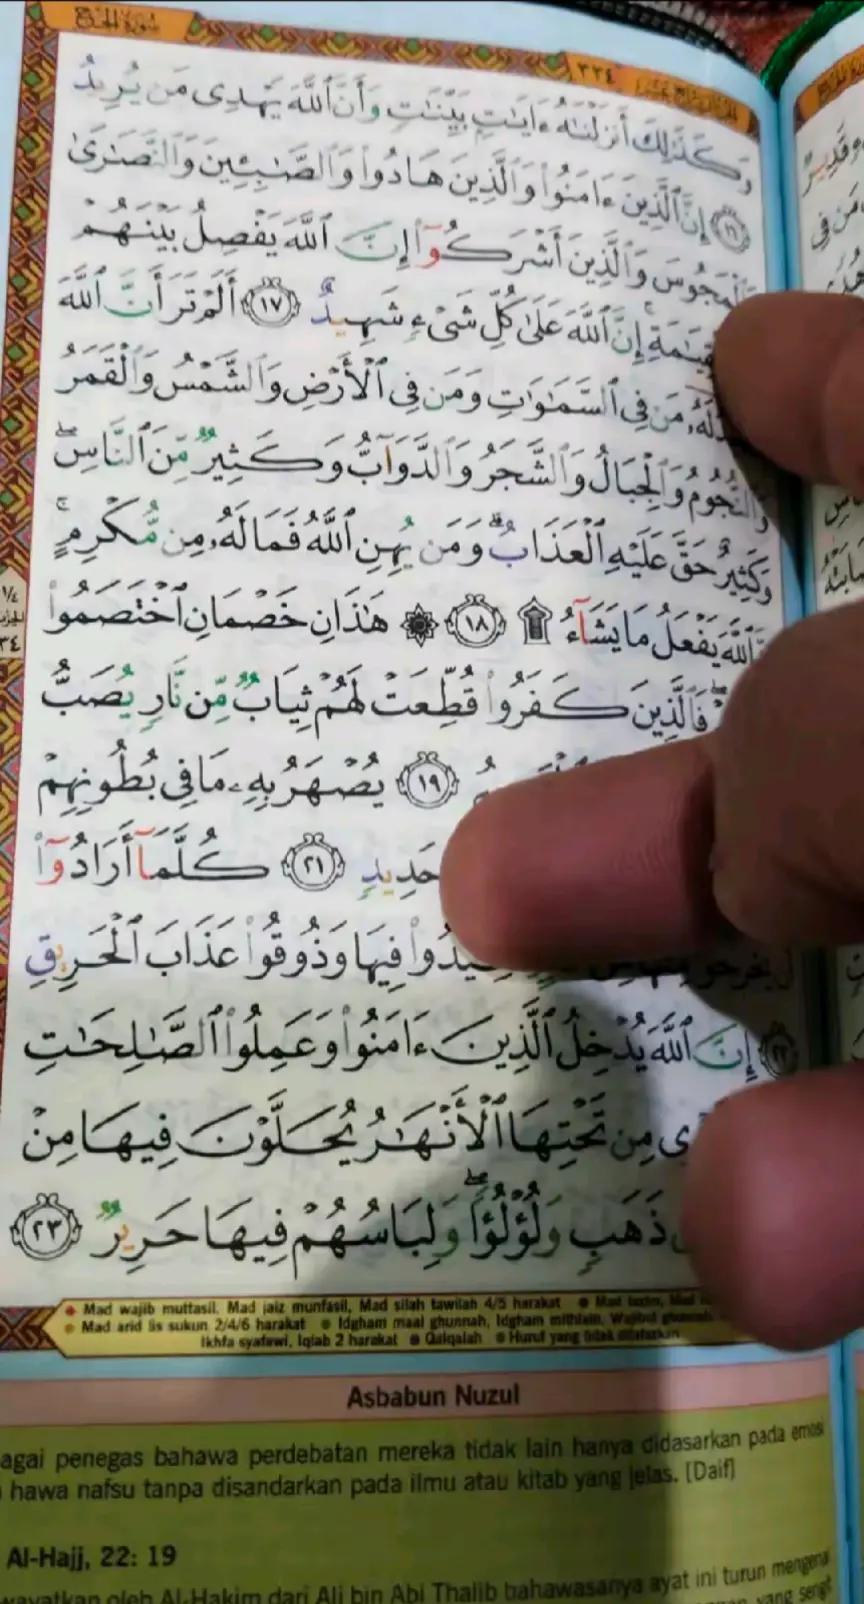 سورة الحج
٣٣٤
وَكَذَٰلِكَ أَنزَلْنَٰهُ ءَايَٰتٍۭ بَيِّنَٰتٍ وَأَنَّ ٱللَّهَ يَهْدِى مَن يُرِيدُ
١٦ إِنَّ ٱلَّذِينَ ءَامَنُوا۟ وَٱلَّذِينَ هَادُوا۟ وَٱلصَّٰبِـِٔينَ وَٱلنَّصَٰرَىٰ
وَٱلْمَجُوسَ وَٱلَّذِينَ أَشْرَكُوٓا۟ إِنَّ ٱللَّهَ يَفْصِلُ بَيْنَهُمْ
إِنَّ ٱللَّهَ عَلَىٰ كُلِّ شَىْءٍ شَهِيدٌ ١٧ أَلَمْ تَرَ أَنَّ ٱللَّهَ
مَن فِى ٱلسَّمَٰوَٰتِ وَمَن فِى ٱلْأَرْضِ وَٱلشَّمْسُ وَٱلْقَمَرُ
وَٱلنُّجُومُ وَٱلْجِبَالُ وَٱلشَّجَرُ وَٱلدَّوَآبُّ وَكَثِيرٌ مِّنَ ٱلنَّاسِ ۖ
وَكَثِيرٌ حَقَّ عَلَيْهِ ٱلْعَذَابُ ۗ وَمَن يُهِنِ ٱللَّهُ فَمَا لَهُۥ مِن مُّكْرِمٍ ۚ
ٱللَّهَ يَفْعَلُ مَا يَشَآءُ ۩ ١٨ ۞ هَٰذَانِ خَصْمَانِ ٱخْتَصَمُوا۟
فَٱلَّذِينَ كَفَرُوا۟ قُطِّعَتْ لَهُمْ ثِيَابٌ مِّن نَّارٍ يُصَبُّ
١٩ يُصْهَرُ بِهِۦ مَا فِى بُطُونِهِمْ
حَدِيدٍ ٢١ كُلَّمَآ أَرَادُوٓا۟
فِيهَا وَذُوقُوا۟ عَذَابَ ٱلْحَرِيقِ
٢٢ إِنَّ ٱللَّهَ يُدْخِلُ ٱلَّذِينَ ءَامَنُوا۟ وَعَمِلُوا۟ ٱلصَّٰلِحَٰتِ
مِن تَحْتِهَا ٱلْأَنْهَٰرُ يُحَلَّوْنَ فِيهَا مِنْ
ذَهَبٍ وَلُؤْلُؤًا ۖ وَلِبَاسُهُمْ فِيهَا حَرِيرٌ ٢٣
Mad wajib muttasil, Mad jaiz munfasil, Mad silah tawilah 4/5 harakat
Mad arid lis sukun 2/4/6 harakat Idgham maal ghunnah, Idgham mithlain, Wajibul
Ikhfa syafawi, Iqlab 2 harakat Qalqalah Huruf yang tidak dilafazkan
Asbabun Nuzul
agai penegas bahawa perdebatan mereka tidak lain hanya didasarkan pada emosi
hawa nafsu tanpa disandarkan pada ilmu atau kitab yang jelas. [Daif]
Al-Hajj, 22: 19
wayatkan oleh Al-Hakim dari Ali bin Abi Thalib bahawasanya ayat ini turun mengenai